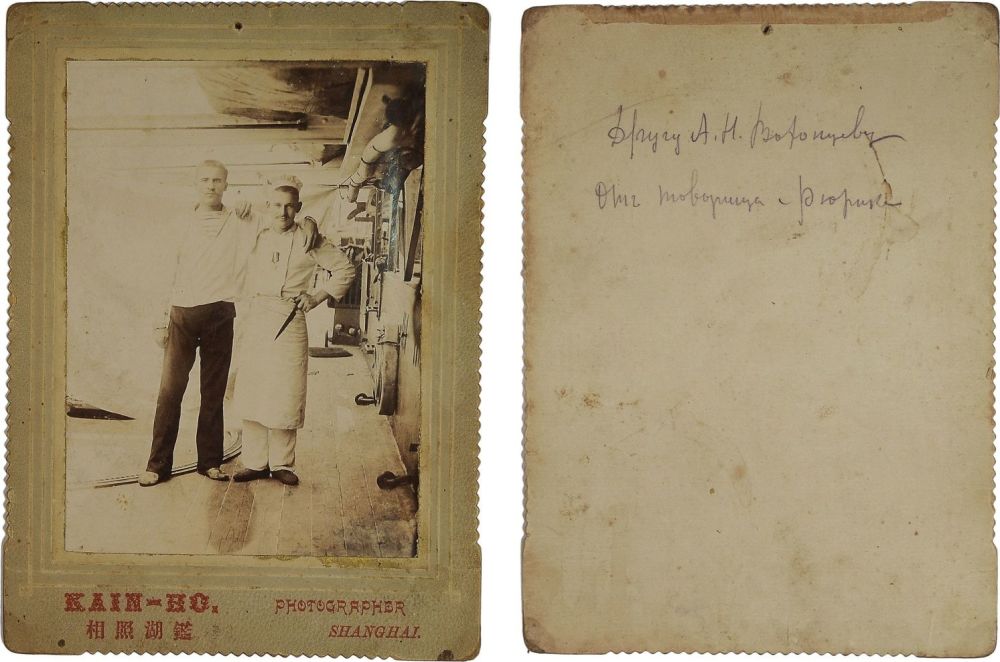 KAIN-HO.
PHOTOGRAPHER
相照湖鑑
SHANGHAI.
Другу А. Н.
Отъ товарища с Рюрика